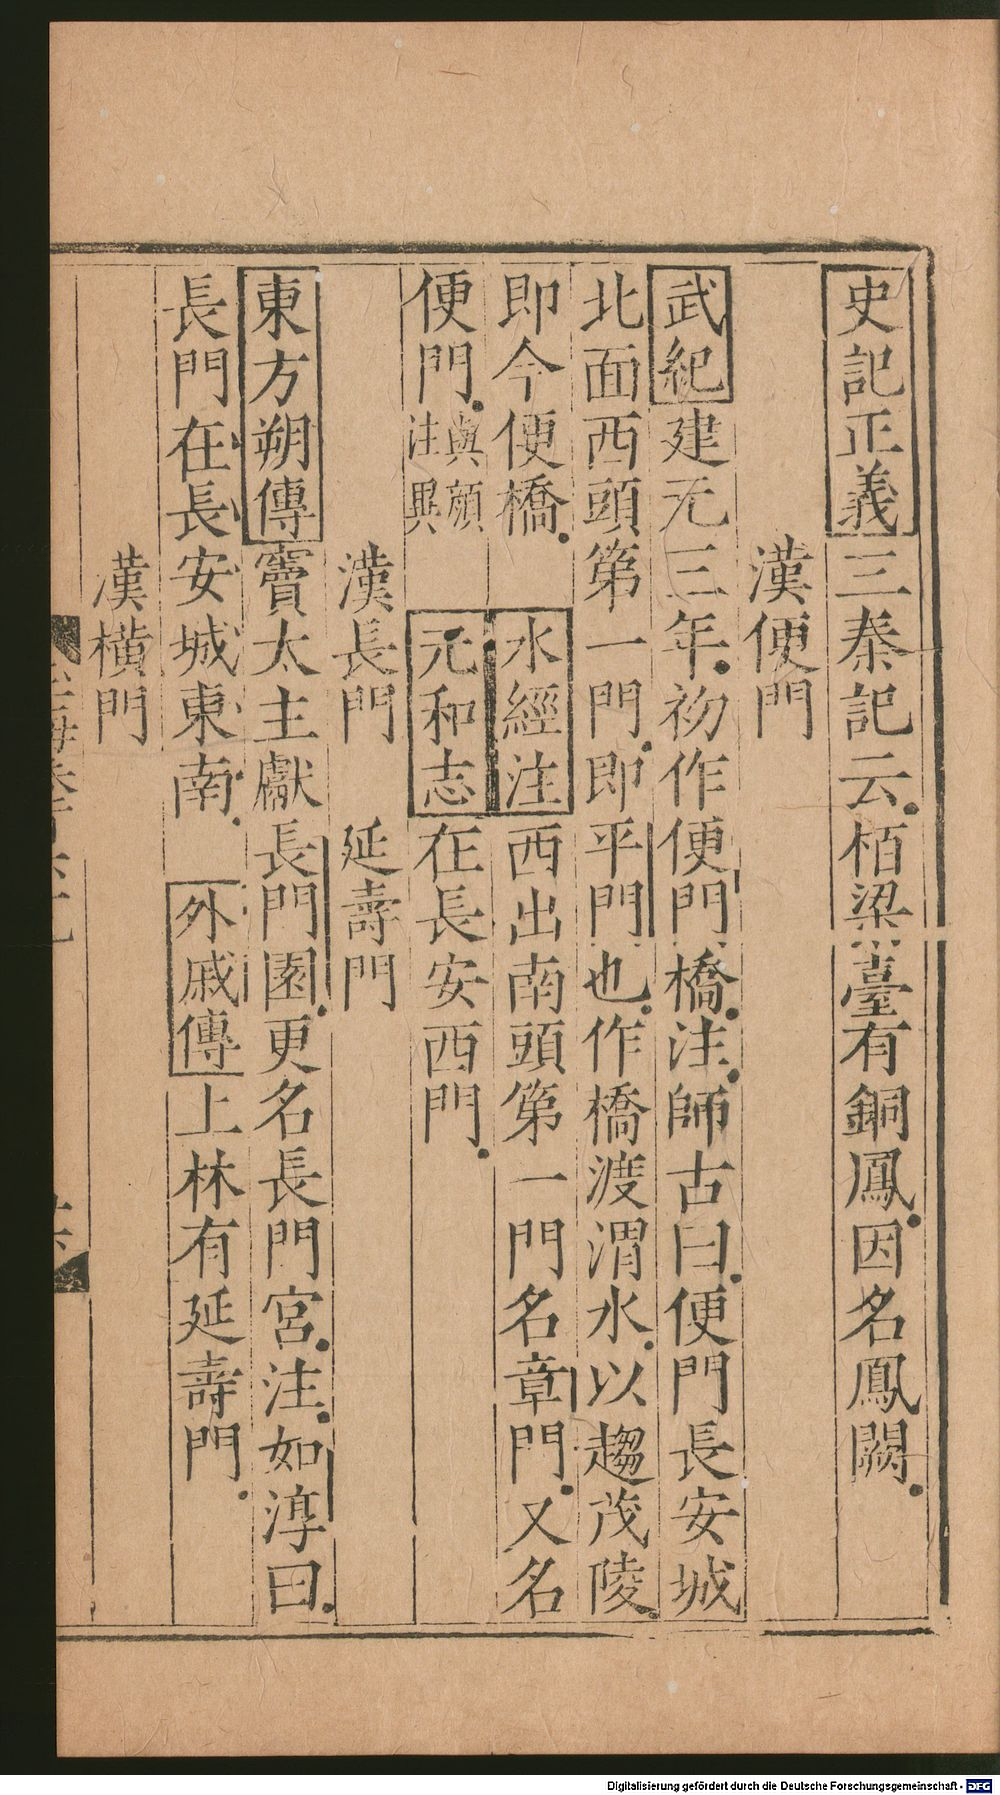 史記正義三秦記云栢梁臺有銅鳳因名鳳闕
漢便門
武紀建元三年初作便門橋注師古曰便門長安城
北面西頭第一門即平門也作橋渡渭水以趨茂陵
即今便橋 水經注西出南頭第一門名章門又名
便門與顔注異 元和志在長安西門
漢長門 延壽門
東方朔傳竇太主獻長門園更名長門宮注如淳曰
長門在長安城東南 外戚傳上林有延壽門
漢橫門
Digitalisierung gefördert durch die Deutsche Forschungsgemeinschaft - DFG